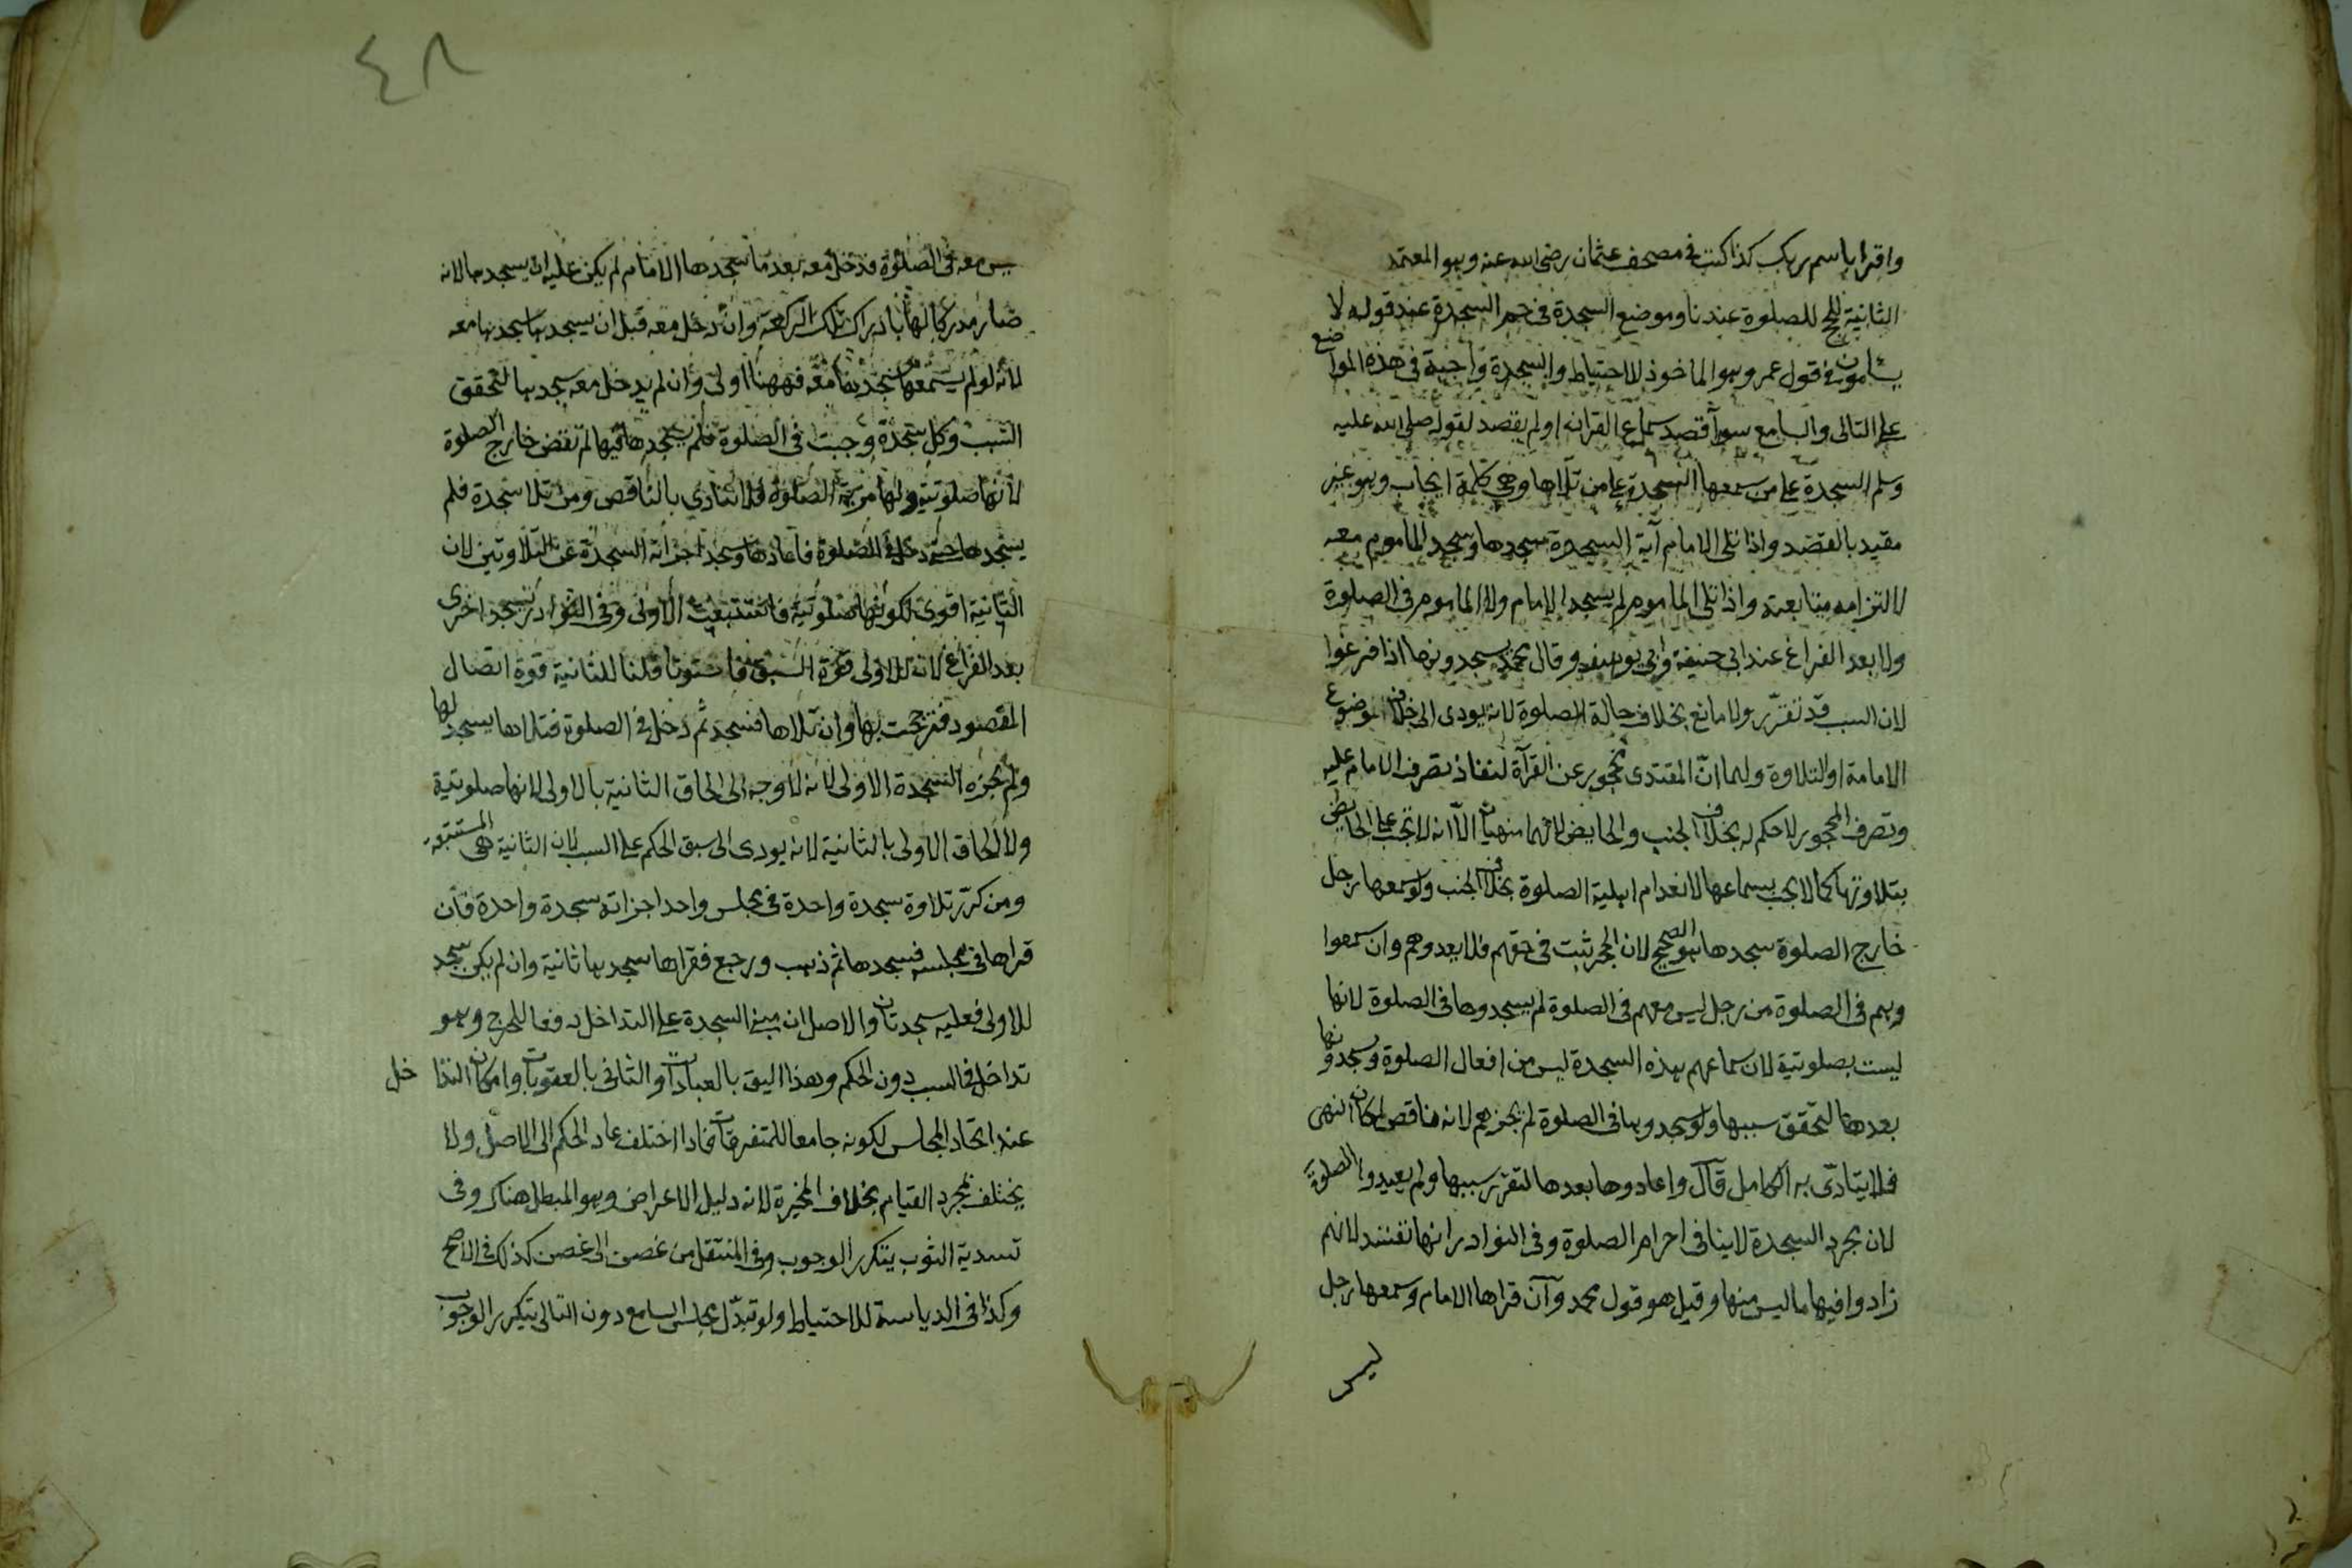 واقرا باسم ربك كذا كتب في مصحف عثمان رضي الله عنه وهو المعتمد
الثانية للحج للصلوة عندنا وموضع السجدة في حم السجدة عند قوله لا
يسأمون في قول عمر وهو الماخوذ للاحتياط والسجدة واجبة في هذه المواضع
على التالى والسامع سوآ قصد سماع القرانه او لم يقصد لقوله صلى الله عليه
وسلم السجدة على من سمعها السجدة على من تلاها وهي كلمة ايجاب وهو غير
مقيد بالقصد واذا تلى الامام آية السجدة سجدها وسجد الماموم معه
لالتزامه متابعته واذا تلى الماموم لم يسجد الامام ولا الماموم في الصلوة
ولا بعد الفراغ عند ابى حنيفة وابى يوسف وقال محمد يسجدونها اذا فرغوا
لان السبب قد تقرّر ولا مانع بخلاف حالة الصلوة لانه يودى الى خلاف موضوع
الامامة او التلاوة ولهما انّ المقتدى محجور عن القرآة لنفاذ تصرف الامام عليه
وتصرف المحجور لا حكم له بخلاف الجنب والحايض لانهما منهيان الاّ انه لا تجب على الحايض
بتلاوتها كما لا يجب بسماعها لانعدام اهلية الصلوة بخلاف الجنب ولو سمعها رجل
خارج الصلوة سجدها هو الصحيح لان الحجر ثبت في حقهم فلا يعدوهم وان سمعوا
وهم في الصلوة من رجل ليس معهم في الصلوة لم يسجدوها في الصلوة لانها
ليست بصلوتية لان سماعهم هذه السجدة ليس من افعال الصلوة وسجدونها
بعدها لتحقق سببها ولو سجدوها في الصلوة لم يجزهم لانه ناقص لمكان النهى
فلا يتادّى به الكامل قآل واعادوها بعدها لتقرر سببها ولم يعيدوا الصلوة
لان مجرد السجدة لا ينافي احرام الصلوة وفي النوادر انها تفسد لانهم
زادوا فيها ما ليس منها وقيل هو قول محمد وآن قراها الامام وسمعها رجل
ليس
٤٨
ليس معه في الصلوة فدخل معه بعد ما سجدها الامام لم يكن عليه ان يسجدها لانه
صار مدركا لها بادراك تلك الركعة وان دخل معه قبل ان يسجدها سجدها معه
لانه لو لم يسمعها سجدها معه فههنا اولى وان لم يدخل معه سجدها لتحقق
السبب وكل سجدة وجبت في الصلوة فلم يسجدها فيها لم تقض خارج الصلوة
لانها صلوتية ولها مزية الصلوة فلا تتادى بالناقص ومن تلا سجدة فلم
يسجدها حتى دخل في الصلوة فاعادها وسجد اجزأته السجدة عن التلاوتين لان
الثانية اقوى لكونها صلوتية فاستتبعت الاولى وفي النوادر تسجد اخرى
بعد الفراغ لانه للاولى قوة السبق فاستوتا قلنا للثانية قوة اتصال
المقصود فترجحت بها وان تلاها فسجد ثم دخل في الصلوة فتلاها يسجد لها
ولم تجزه السجدة الاولى لانه لا وجه الى الحاق الثانية بالاولى لانها صلوتية
ولا الحاق الاولى بالثانية لانه يودى الى سبق الحكم على السبب لان الثانية هي المستتبعة
ومن كرّر تلاوة سجدة واحدة في مجلس واحد اجزاته سجدة واحدة فان
قراها في مجلسه فسجدها ثم ذهب ورجع فقراها سجدها ثانية وان لم يكن سجد
للاولى فعليه سجدتان والاصل ان مبنى السجدة على التداخل دفعا للحرج وهو
تداخل في السبب دون الحكم وهذا اليق بالعبادات والثانى بالعقوبات وامكان التداخل
عند اتحاد المجلس لكونه جامعا للمتفرقات فاذا اختلف عاد الحكم الى الاصل ولا
يختلف بمجرد القيام بخلاف المخيرة لانه دليل الاعراض وهو المبطل هناك وفي
تسدية الثوب يتكرر الوجوب وفي المنتقل من غصن الى غصن كذلك في الاصح
وكذا في الدياسة للاحتياط ولو تبدّل مجلس السامع دون التالى يتكرر الوجوب